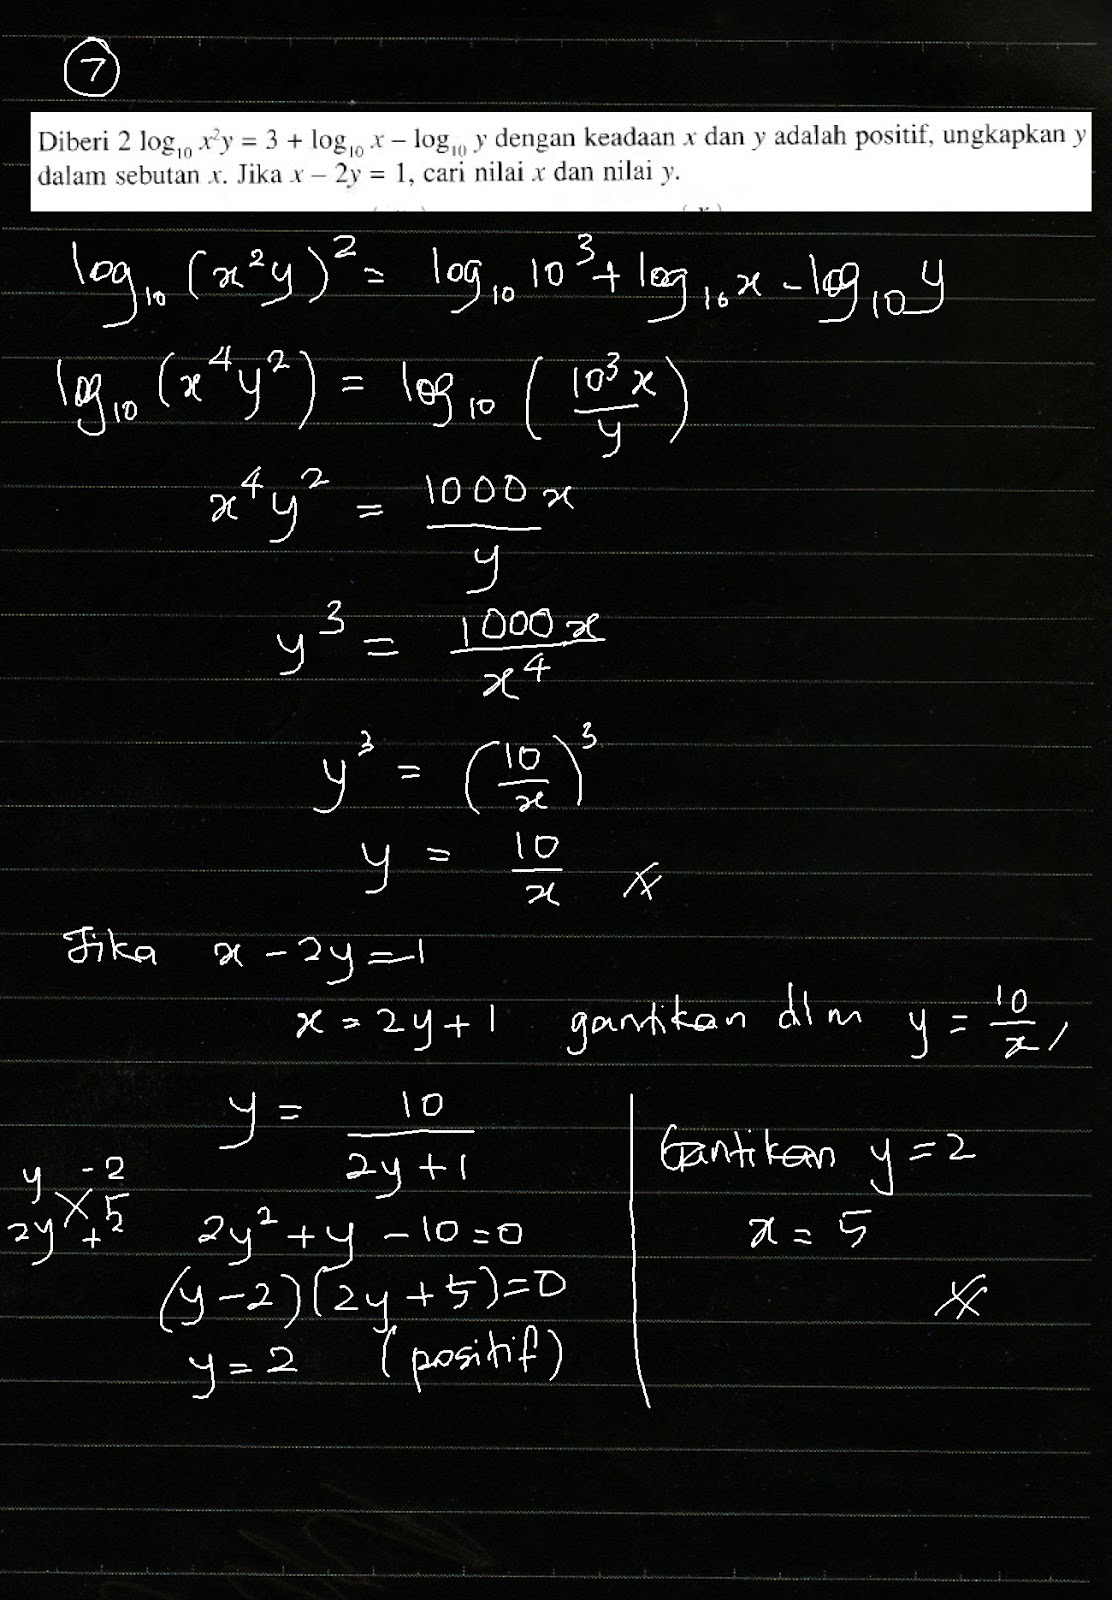 7
Diberi 2 log₁₀ x²y = 3 + log₁₀ x – log₁₀ y dengan keadaan x dan y adalah positif, ungkapkan y
dalam sebutan x. Jika x – 2y = 1, cari nilai x dan nilai y.
log₁₀ (x²y)² = log₁₀ 10³ + log₁₀ x – log₁₀ y
log₁₀ (x⁴y²) = log₁₀ (10³x / y)
x⁴y² = 1000x / y
y³ = 1000x / x⁴
y³ = (10/x)³
y = 10/x
Jika x – 2y = 1
x = 2y + 1 gantikan dlm y = 10/x,
y = 10 / 2y + 1
y -2
2y +5 2
2y² + y – 10 = 0
(y – 2)(2y + 5) = 0
y = 2 (positif)
Gantikan y = 2
x = 5